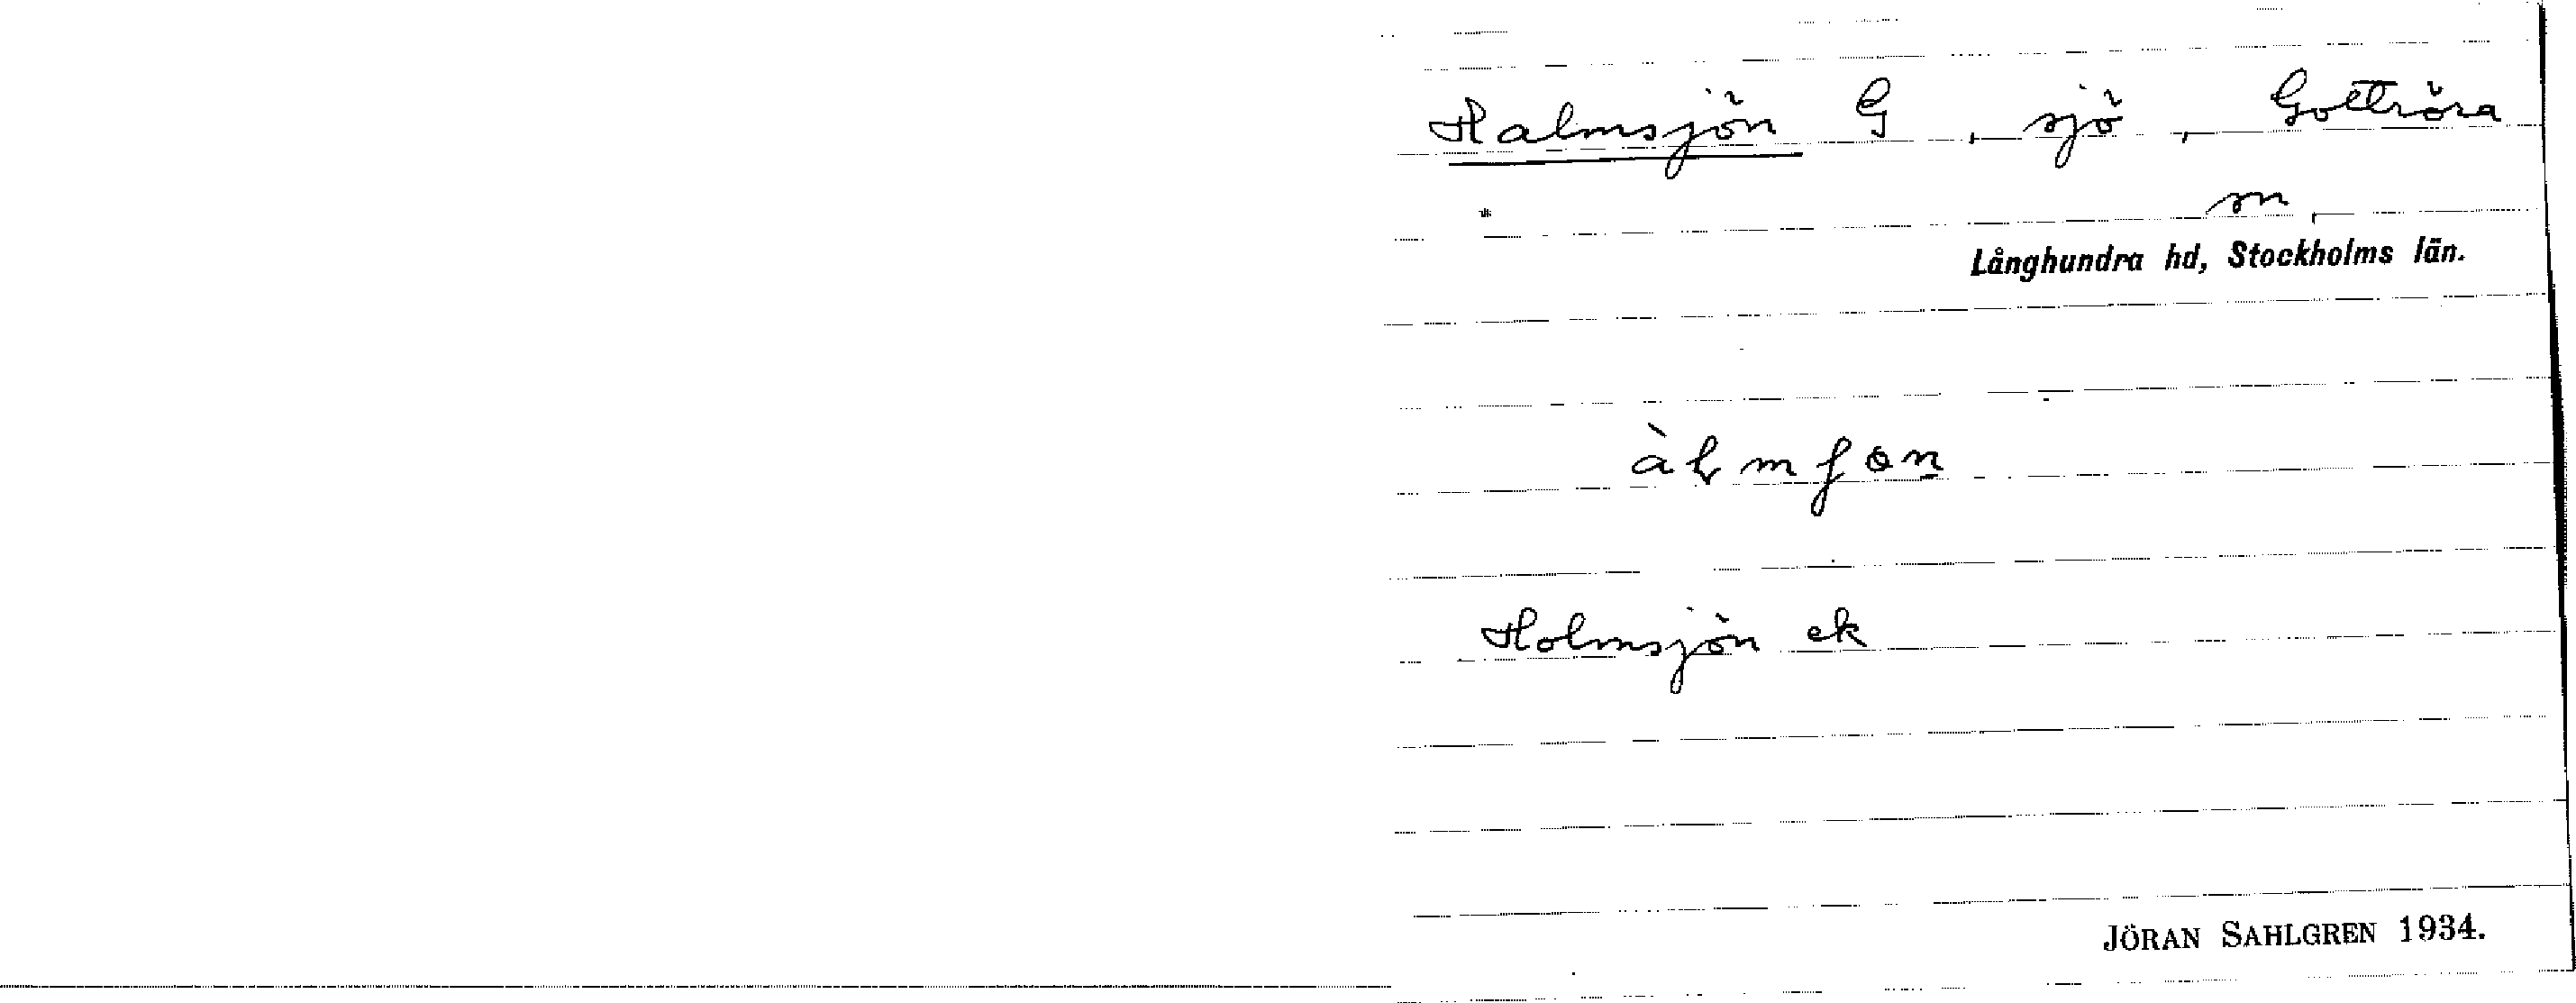 Halmsjön G, sjö, Gottröra
sn,
Långhundra hd, Stockholms län.
Holmsjön ek
JÖRAN SAHLGREN 1934.